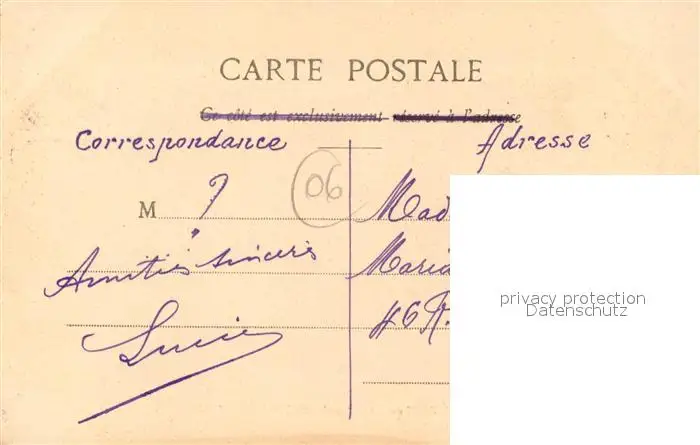 CARTE POSTALE
Ce côté est exclusivement réservé à l'adresse
Correspondance
Adresse
06
M ?
Mad
Amitiés sincères
Maria
Lucie
46 R.
privacy protection
Datenschutz